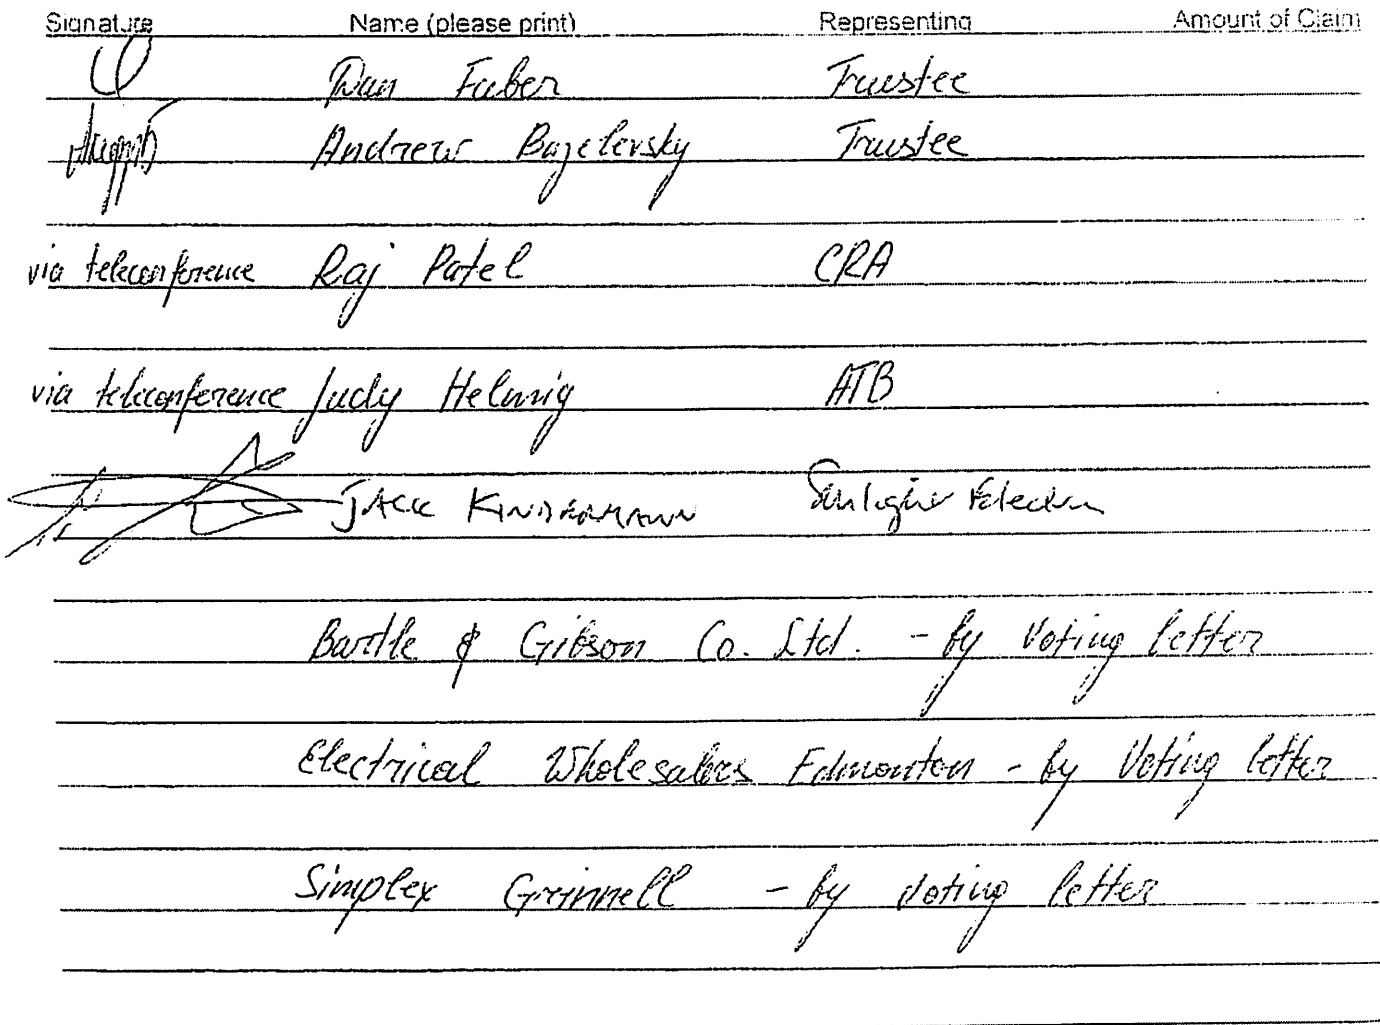 Signature Name (please print) Representing Amount of Claim
Dan Faber Trustee
Andrew Bazelevsky Trustee
via teleconference Raj Patel CRA
via teleconference Judy Helmig ATB
JACK KINDERMANN
Bartle & Gibson Co. Ltd. - by voting letter
Electrical Wholesalers Edmonton - by voting letter
Simplex Grinnell - by voting letter